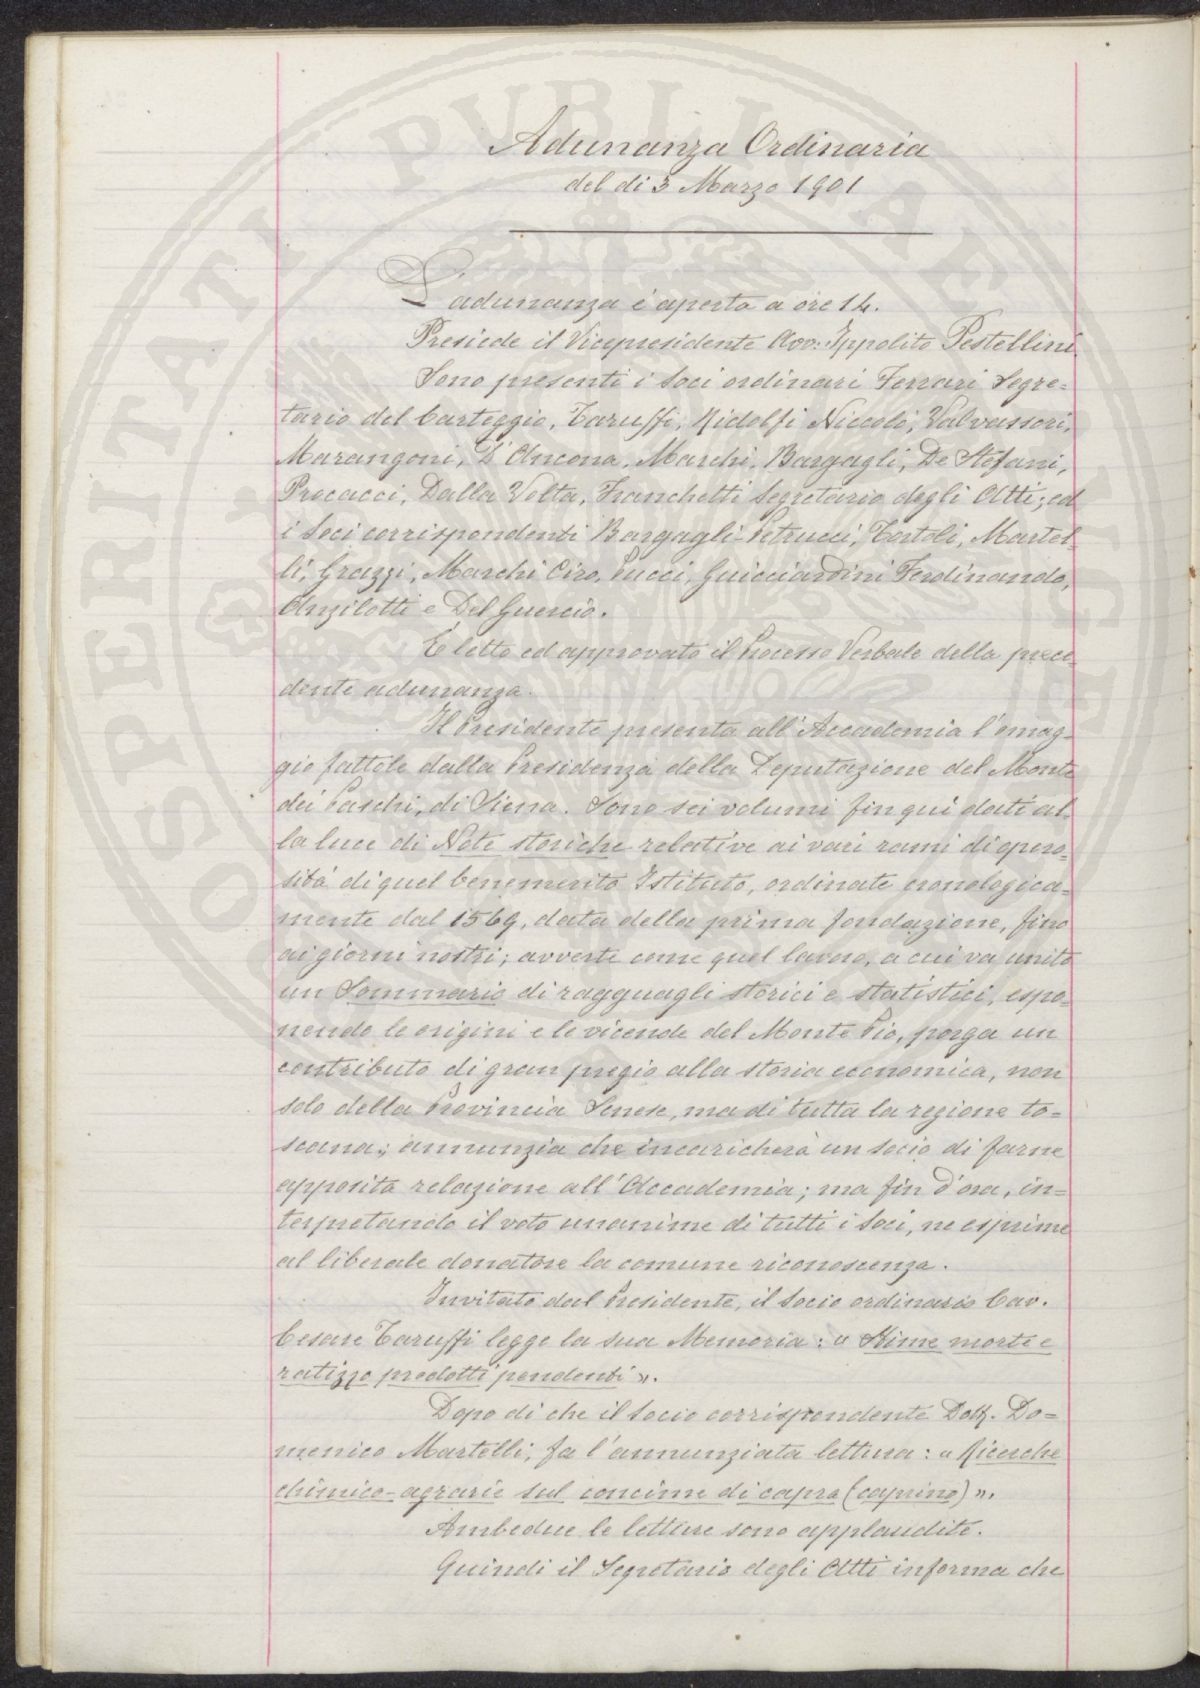 Adunanza Ordinaria
del dì 3 Marzo 1901
L'adunanza è aperta a ore 14.
Presiede il Vicepresidente Avv: Ippolito Pestellini.
Sono presenti i Soci ordinari Ferrari Segre=
tario del Carteggio, Taruffi, Ridolfi Niccolò, Valvassori,
Marangoni, D'Ancona, Marchi, Bargagli, De Stefani,
Procacci, Dalla Volta, Franchetti Segretario degli Atti; ed
i Soci corrispondenti Bargagli-Petrucci, Tortoli, Martel-
li, Grazzi, Marchi Ciro, Pucci, Guicciardini Ferdinando,
Anzilotti e Del Guercio.
È letto ed approvato il Processo Verbale della prece
dente adunanza.
Il Presidente presenta all'Accademia l'omag-
gio fattole dalla Presidenza della Deputazione del Monte
dei Paschi, di Siena. Sono sei volumi fin qui dati al-
la luce di Note storiche relative ai vari rami di opero-
sità di quel benemerito Istituto, ordinate cronologica-
mente dal 1569, data della prima fondazione, fino
ai giorni nostri; avverte come quel lavoro, a cui va unito
un Sommario di ragguagli storici e statistici, espo-
nendo le origini e le vicende del Monte Pio, porga un
contributo di gran pregio alla storia economica, non
solo della Provincia Senese, ma di tutta la regione to=
scana; annunzia che incaricherà un socio di farne
apposita relazione all'Accademia; ma fin d'ora, in=
terpretando il voto unanime di tutti i Soci, ne esprime
al liberale donatore la comune riconoscenza.
Invitato dal Presidente, il Socio ordinario Cav.
Cesare Taruffi legge la sua Memoria: « Stime morte e
ratizzo prodotti pendenti ».
Dopo di che il Socio corrispondente Dott. Do=
menico Martelli, fa l'annunziata lettura: « Ricerche
chimico-agrarie sul concime di capra (caprino) ».
Ambedue le letture sono applaudite.
Quindi il Segretario degli Atti informa che
SPERITATI PUBLICAE